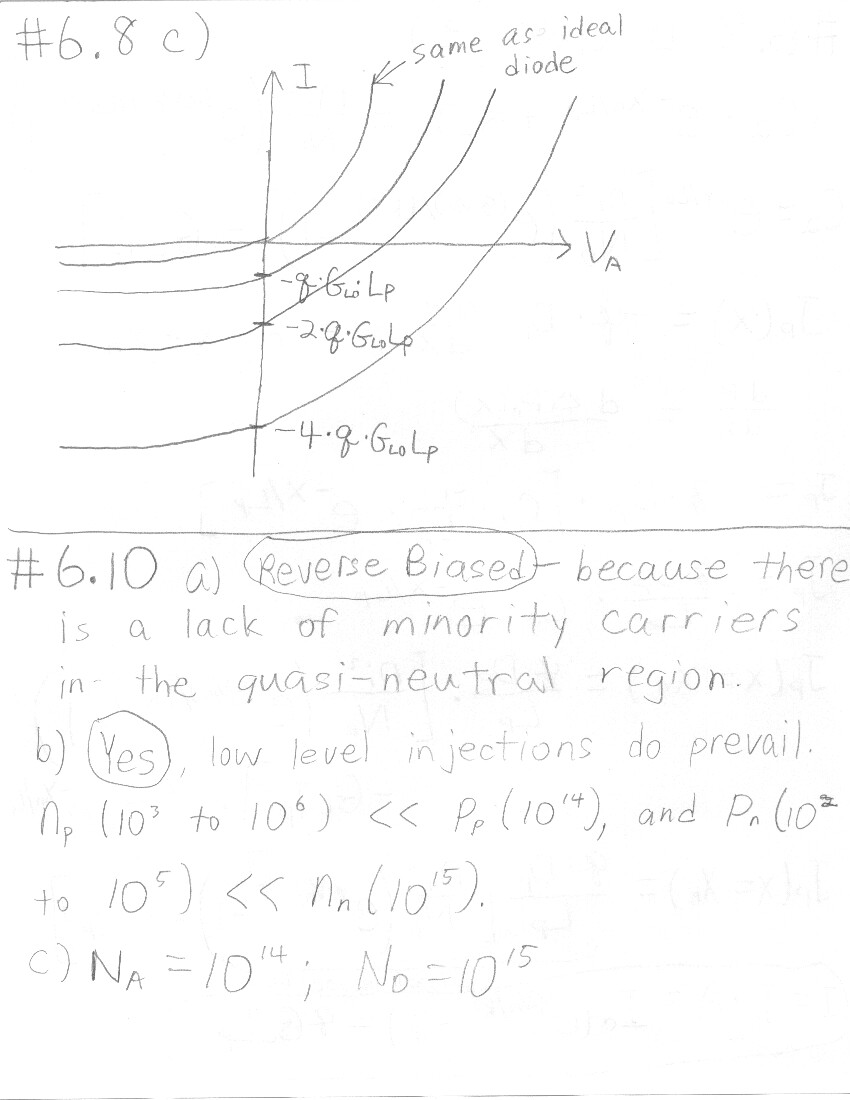 #6.8 c)
same as ideal
diode
I
V_A
-q·G_L0·L_P
-2·q·G_L0L_P
-4·q·G_L0L_P
#6.10 a) Reverse Biased - because there
is a lack of minority carriers
in the quasi-neutral region.
b) Yes, low level injections do prevail.
n_p (10³ to 10⁶) << P_p (10¹⁴), and P_n (10²
to 10⁵) << n_n (10¹⁵).
c) N_A = 10¹⁴; N_D = 10¹⁵